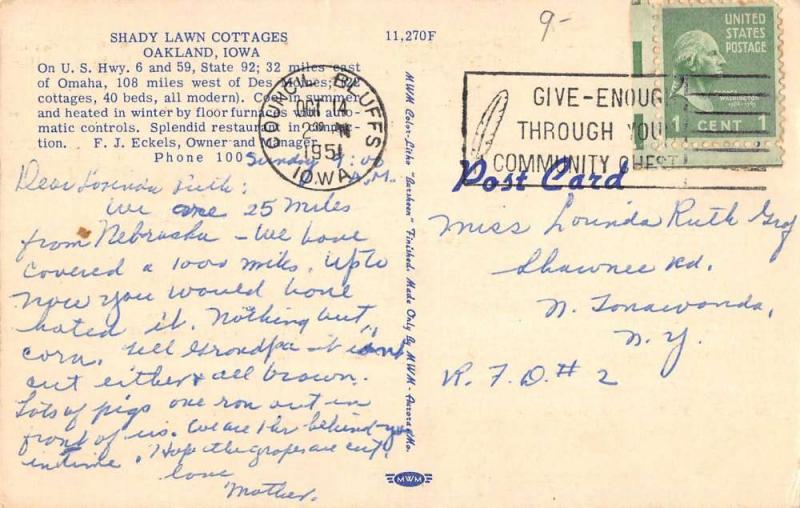 SHADY LAWN COTTAGES
OAKLAND, IOWA
11,270F
On U. S. Hwy. 6 and 59, State 92; 32 miles east
of Omaha, 108 miles west of Des Moines;
cottages, 40 beds, all modern). Cool in summer
and heated in winter by floor furnaces with auto-
matic controls. Splendid restaurant in connec-
tion. F. J. Eckels, Owner and Manager
Phone 100
COUNCIL BLUFFS
OCT 14
2 30
1951
IOWA
Sunday 9:00
A.M.
Dear Lorinda Ruth:
We are 25 miles
from Nebraska - We have
covered a 1000 miles. Up to
now you would have
hated it. Nothing but
corn. Tell Grandpa it isn't
cut either & all brown.
Lots of pigs one ran out in
front of us. We are 1 hr behind you
in time. Hope the grapes are cut.
love
Mother.
MWM Color-Litho "Larsheen" Finished. Made Only By MWM, Aurora, Mo.
MWM
9-
UNITED
STATES
POSTAGE
WASHINGTON
1 CENT 1
GIVE-ENOUG
THROUGH YOU
COMMUNITY CHEST
Post Card
Miss Lorinda Ruth
Shawnee Rd.
N. Tonawanda,
N. Y.
R. F. D. # 2